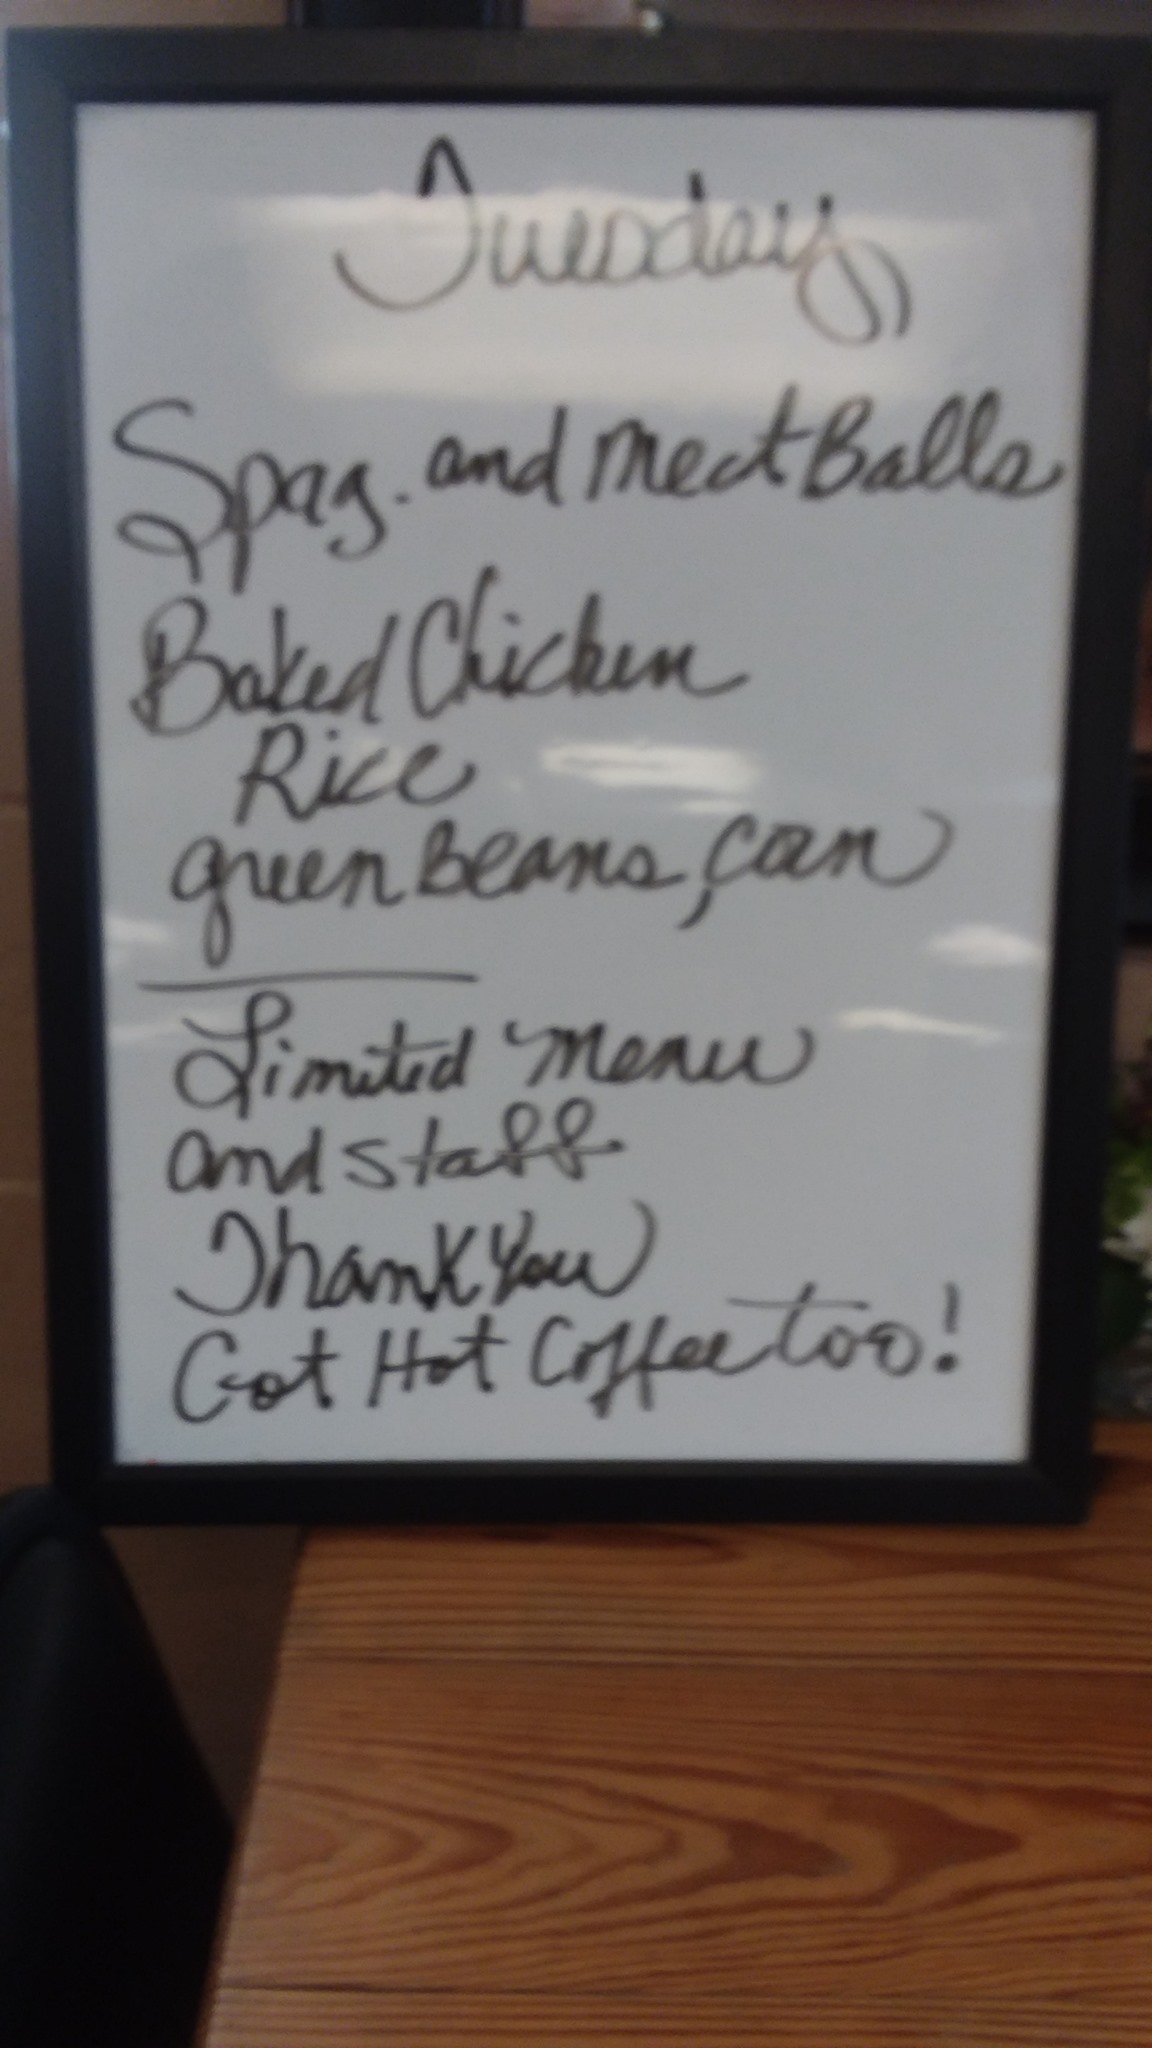 Tuesday
Spag. and meatBalls
Baked Chicken
Rice
green Beans, corn
Limited menu
and staff
Thank You
Got Hot Coffee too!